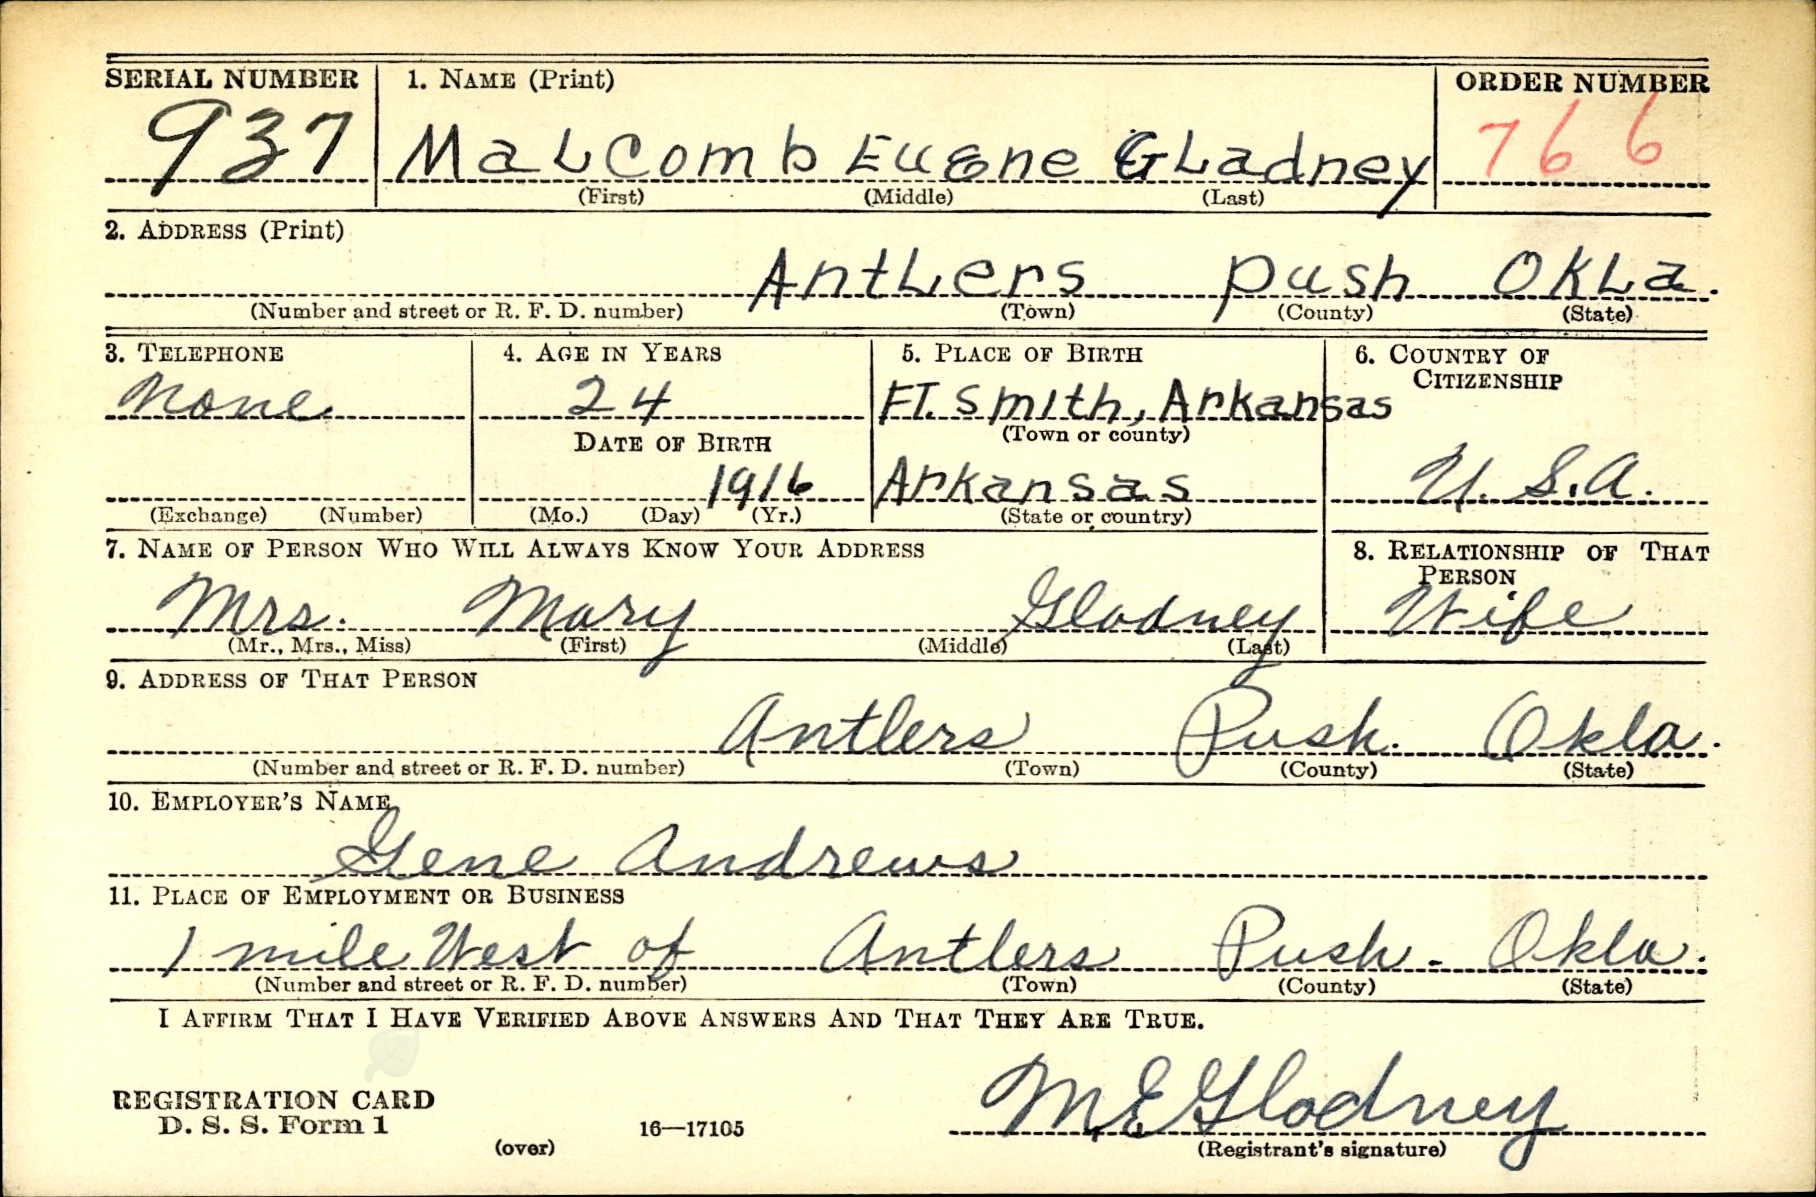 SERIAL NUMBER 1. NAME (Print) ORDER NUMBER
937 MaLComb EuGne GLadney 766
(First) (Middle) (Last)
2. ADDRESS (Print)
AntLers Push OKLa.
(Number and street or R. F. D. number) (Town) (County) (State)
3. TELEPHONE 4. AGE IN YEARS 5. PLACE OF BIRTH 6. COUNTRY OF
CITIZENSHIP
None 24 FT. Smith, Arkansas
(Town or county)
DATE OF BIRTH
1916 Arkansas U.S.A.
(Exchange) (Number) (Mo.) (Day) (Yr.) (State or country)
7. NAME OF PERSON WHO WILL ALWAYS KNOW YOUR ADDRESS 8. RELATIONSHIP OF THAT
PERSON
Mrs. Mary Gladney Wife
(Mr., Mrs., Miss) (First) (Middle) (Last)
9. ADDRESS OF THAT PERSON
Antlers Push. Okla.
(Number and street or R. F. D. number) (Town) (County) (State)
10. EMPLOYER'S NAME
Gene Andrews
11. PLACE OF EMPLOYMENT OR BUSINESS
1 mile West of Antlers Push. Okla.
(Number and street or R. F. D. number) (Town) (County) (State)
I AFFIRM THAT I HAVE VERIFIED ABOVE ANSWERS AND THAT THEY ARE TRUE.
M E Gladney
REGISTRATION CARD
D. S. S. Form 1
(over) 16—17105 (Registrant's signature)